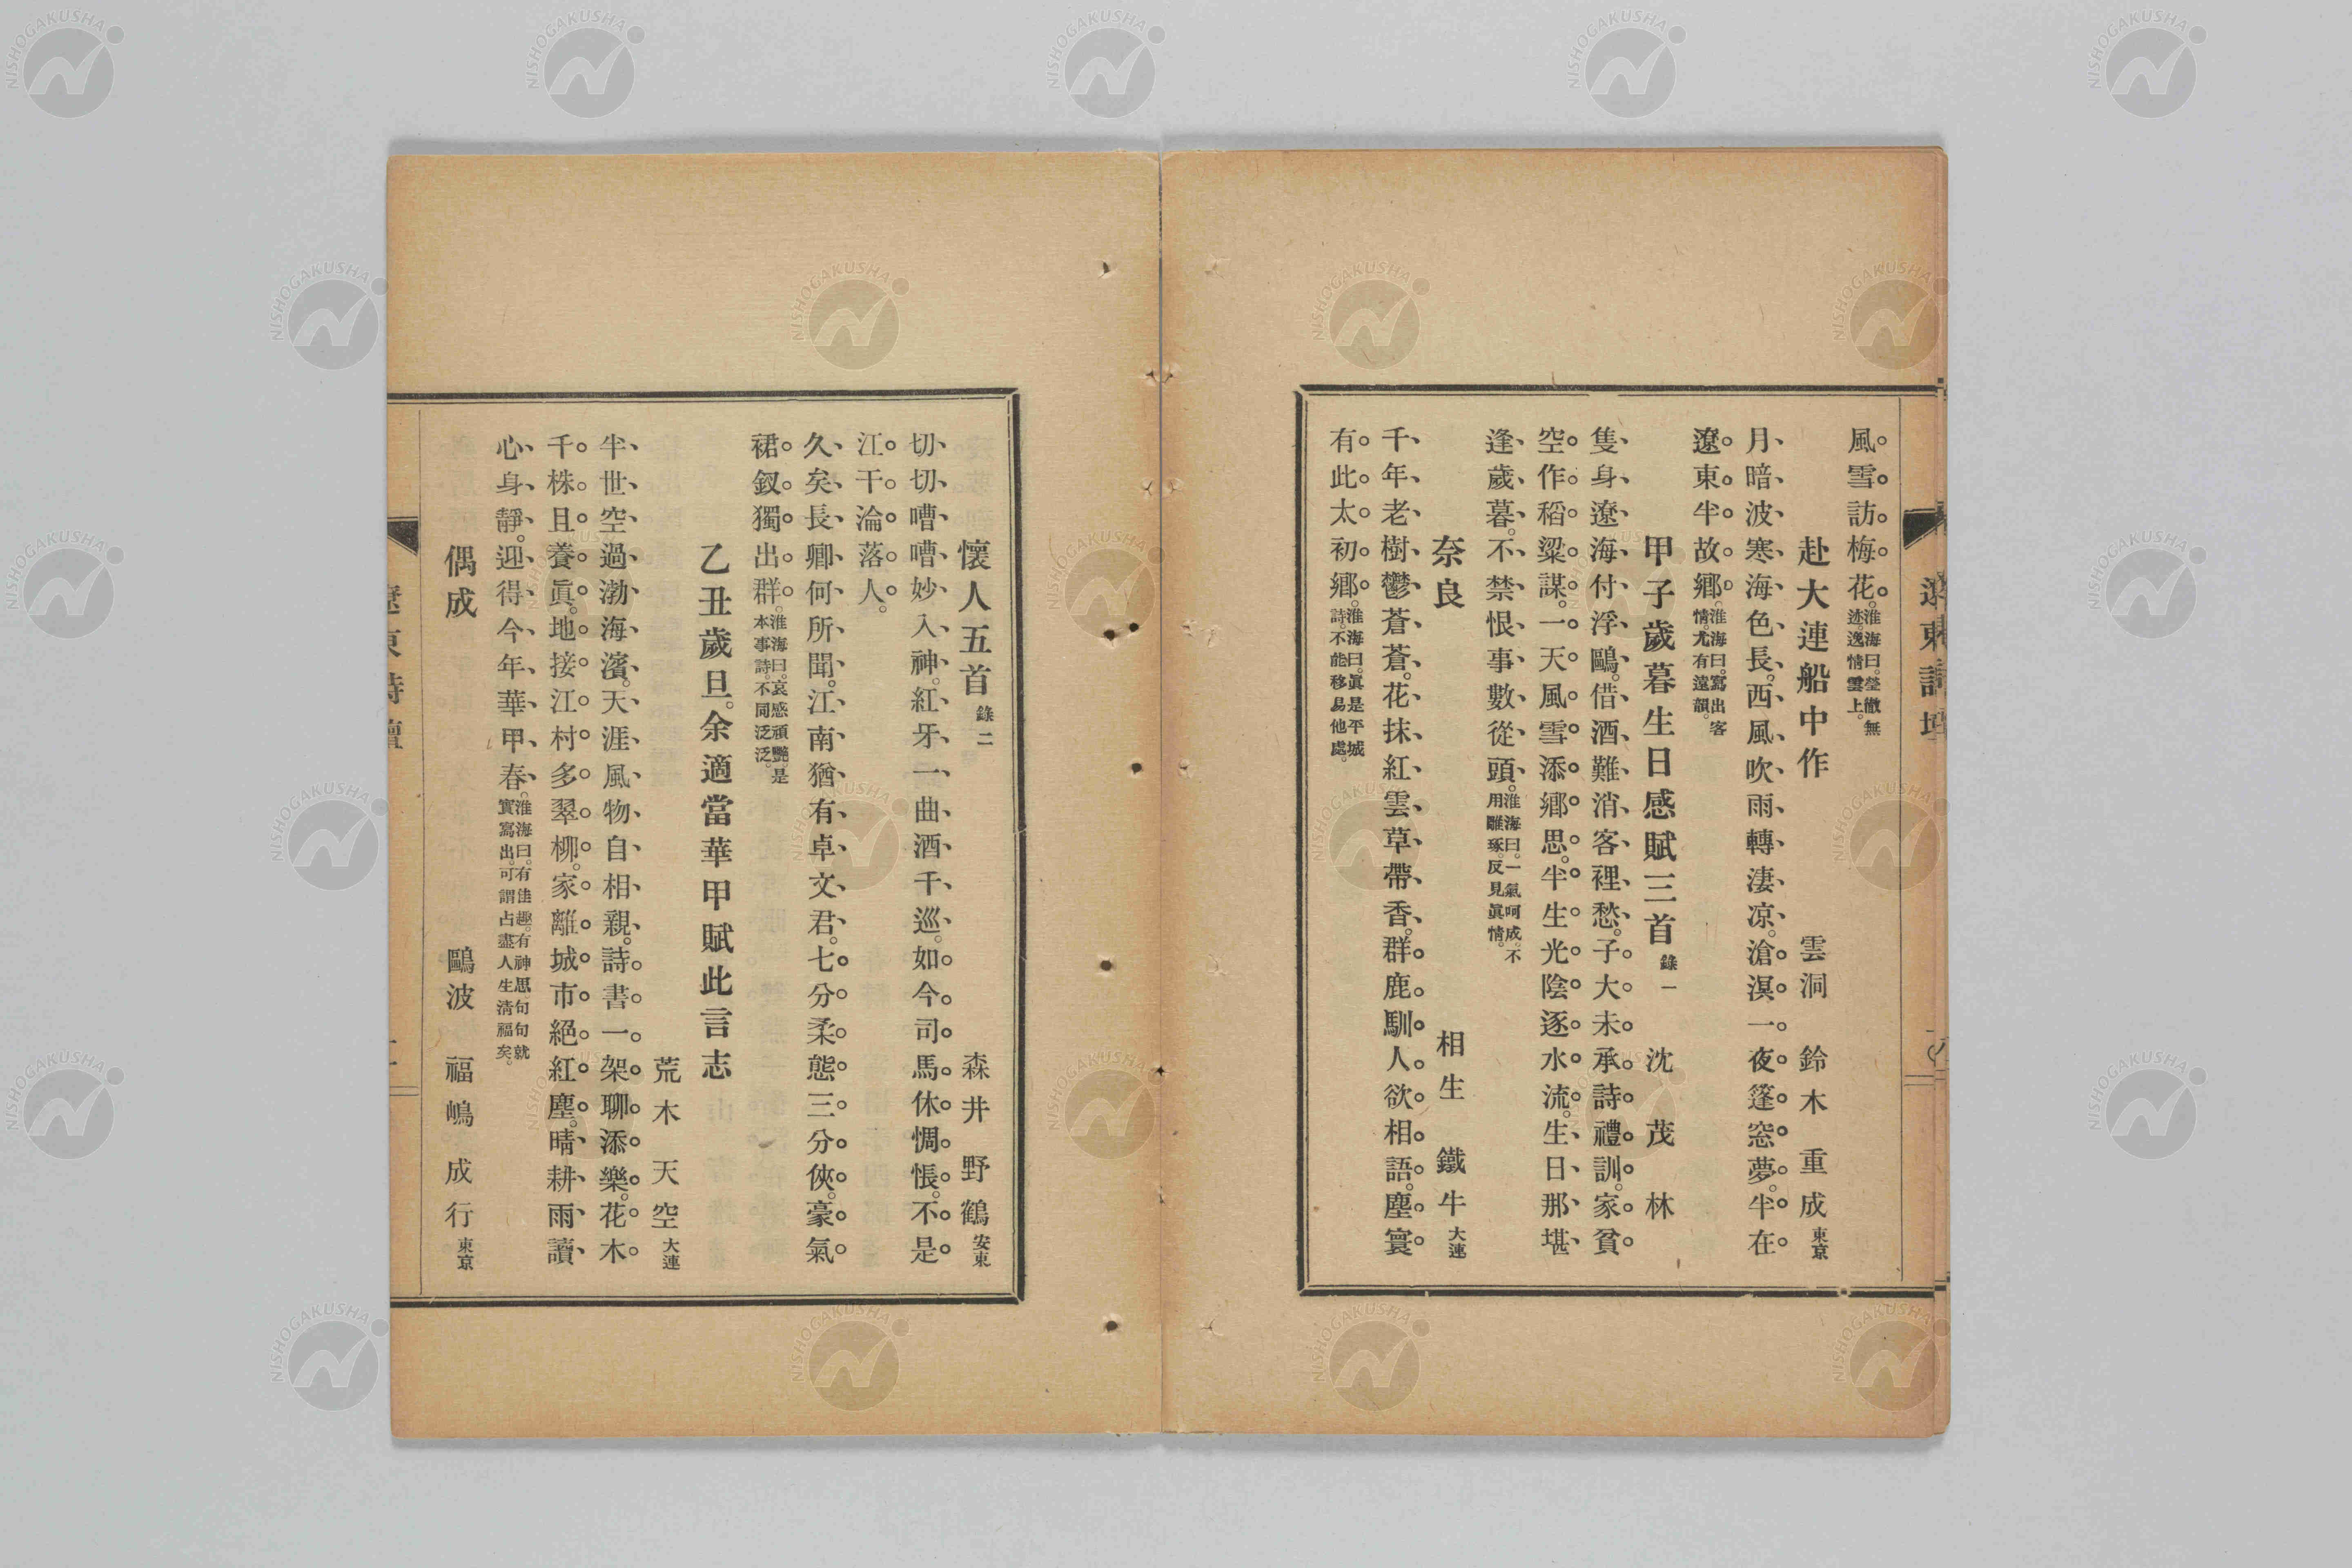 遼東詩壇
風雪訪梅花。淮海曰。瑩徹無迹。逸情雲上。
赴大連船中作 雲洞 鈴木重成 東京
月暗波寒海色長。西風吹雨轉凄凉。滄溟一夜篷窓夢。半在
遼東半故鄉。淮海曰。寫出客情。尤有遠韻。
甲子歲暮生日感賦三首 錄一 沈茂林
隻身遼海付浮鷗。借酒難消客裡愁。子大未承詩禮訓。家貧
空作稻粱謀。一天風雪添鄉思。半生光陰逐水流。生日那堪
逢歲暮。不禁恨事數從頭。淮海曰。一氣呵成。不用雕琢。反見眞情。
奈良 相生鐵牛 大連
千年老樹鬱蒼蒼。花抹紅雲草帶香。群鹿馴人欲相語。塵寰
有此太初鄉。淮海曰。眞是平城詩。不能移易他處。
懷人五首 錄二 森井野鶴 安東
切切嘈嘈妙入神。紅牙一曲酒千巡。如今司馬休惆悵。不是
江干淪落人。
久矣長卿何所聞。江南猶有卓文君。七分柔態三分俠。豪氣
裙釵獨出群。淮海曰。哀感頑艷。是本事詩。不同泛泛。
乙丑歲旦。余適當華甲賦此言志
荒木天空 大連
半世空過渤海濱。天涯風物自相親。詩書一架聊添樂。花木
千株且養眞。地接江村多翠柳。家離城市絕紅塵。晴耕雨讀
心身靜。迎得今年華甲春。淮海曰。有佳趣。有神思。句句就實寫出。可謂占盡人生淸福矣。
偶成 鷗波 福嶋成行 東京
遼東詩壇